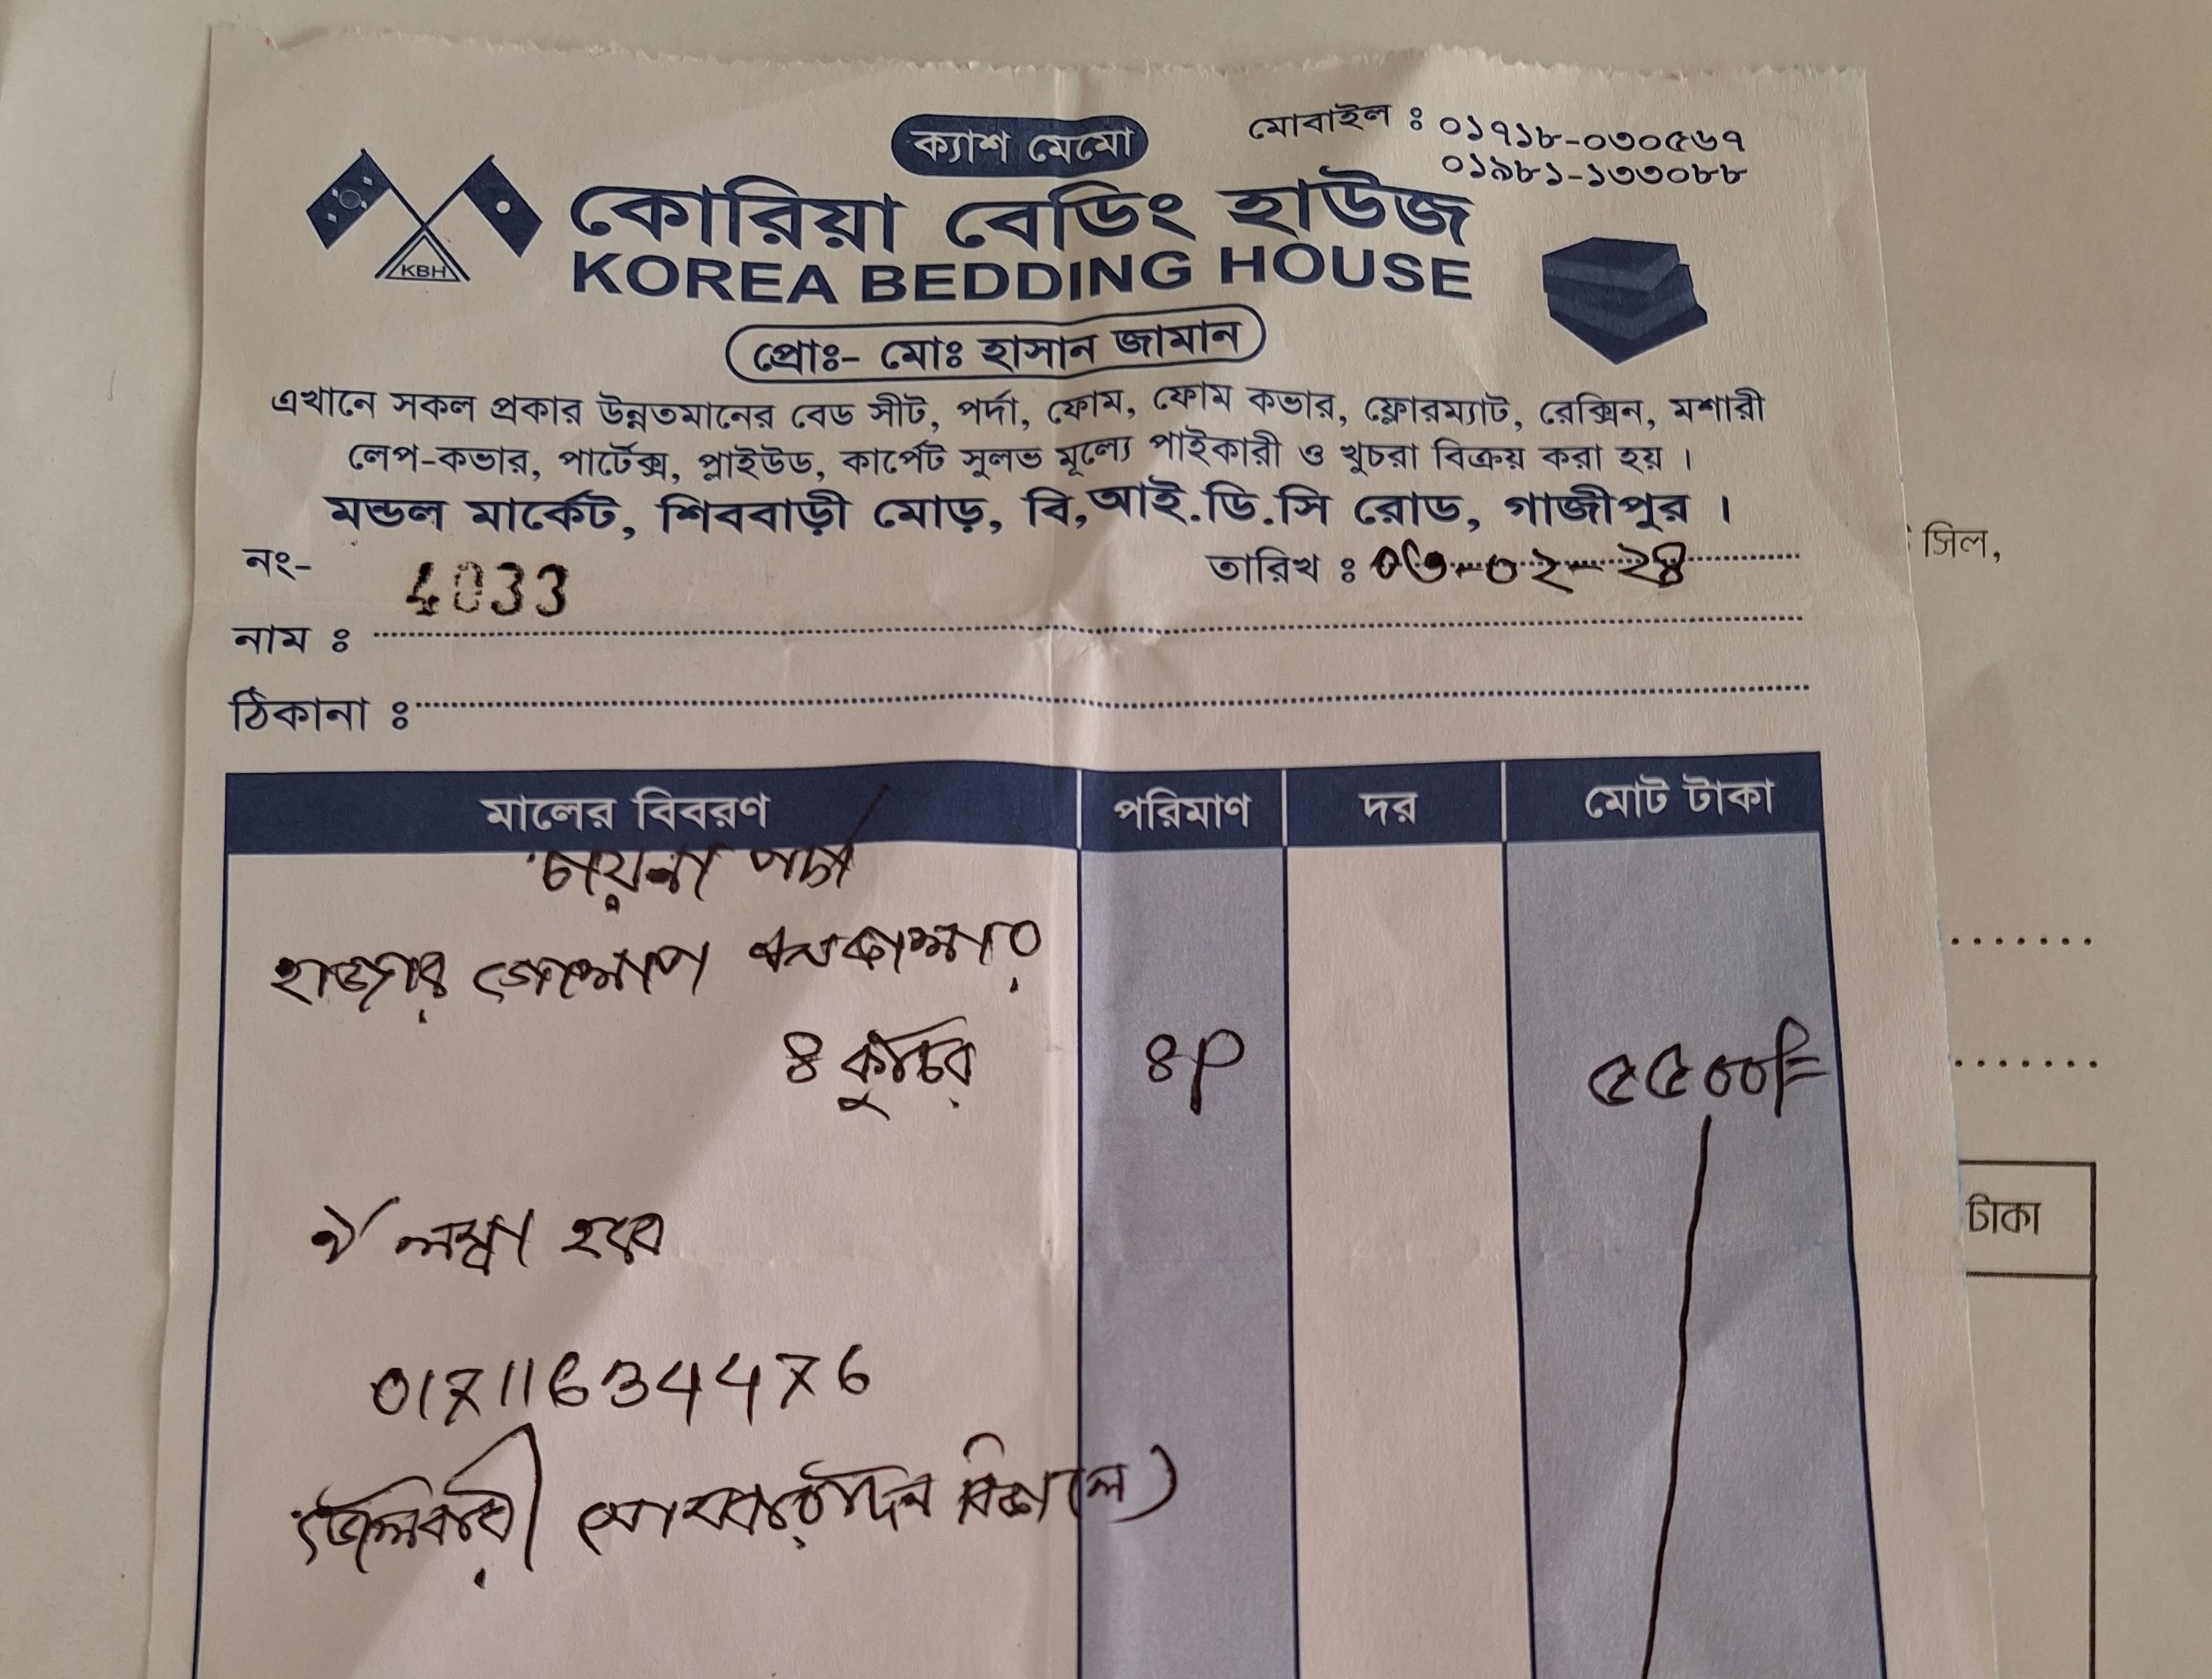 ক্যাশ মেমো
মোবাইল ঃ ০১৭১৮-০৩০৫৬৭
০১৯৮১-১৩৩০৮৮
KBH
কোরিয়া বেডিং হাউজ
KOREA BEDDING HOUSE
প্রোঃ- মোঃ হাসান জামান
এখানে সকল প্রকার উন্নতমানের বেড সীট, পর্দা, ফোম, ফোম কভার, ফ্লোরম্যাট, রেক্সিন, মশারী
লেপ-কভার, পার্টেক্স, প্লাইউড, কার্পেট সুলভ মূল্যে পাইকারী ও খুচরা বিক্রয় করা হয় ।
মন্ডল মার্কেট, শিববাড়ী মোড়, বি,আই.ডি.সি রোড, গাজীপুর ।
নং- 4033 তারিখ ঃ ০৩-০২-২৪
নাম ঃ
ঠিকানা ঃ
মালের বিবরণ পরিমাণ দর মোট টাকা
চায়না পর্দা
হাজার গোলাপ
৪ কুচির ৪P ৫৫০০/=
৭' লম্বা হবে
01711634476
ডেলিবারী সোমবার দিন বিকালে)
সিল,
টাকা